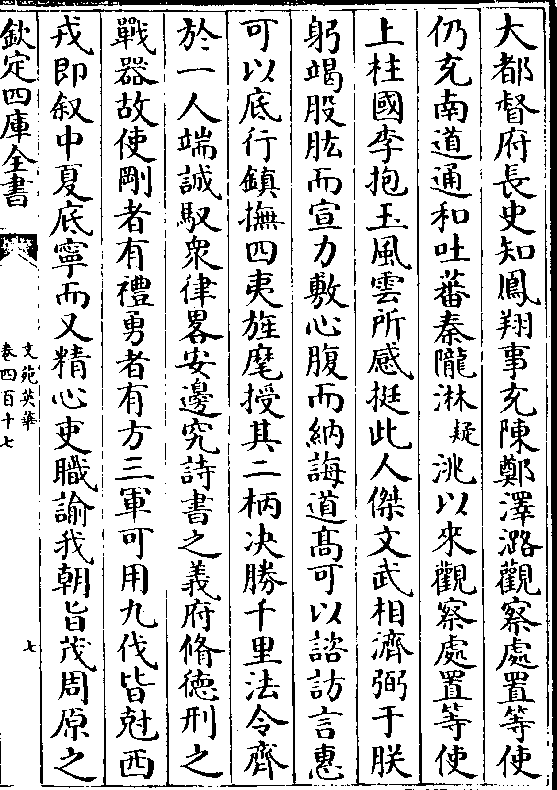 大都督府長史知鳳翔事充陳鄭澤潞觀察處置等使
仍充南道通和吐蕃秦隴淋疑洮以來觀察處置等使
上柱國李抱玉風雲所感挺此人傑文武相濟弼于朕
躬竭股肱而宣力敷心腹而納誨道髙可以諮訪言惠
可以底行鎮撫四夷旌麾授其二柄決勝千里法令齊
於一人端誠馭衆律畧安邊究詩書之義府脩徳刑之
戰器故使剛者有禮勇者有方三軍可用九伐皆尅西
戎即叙中夏底寧而又精心吏職諭我朝旨茂周原之
欽定四庫全書
文苑英華
卷四百十七
七